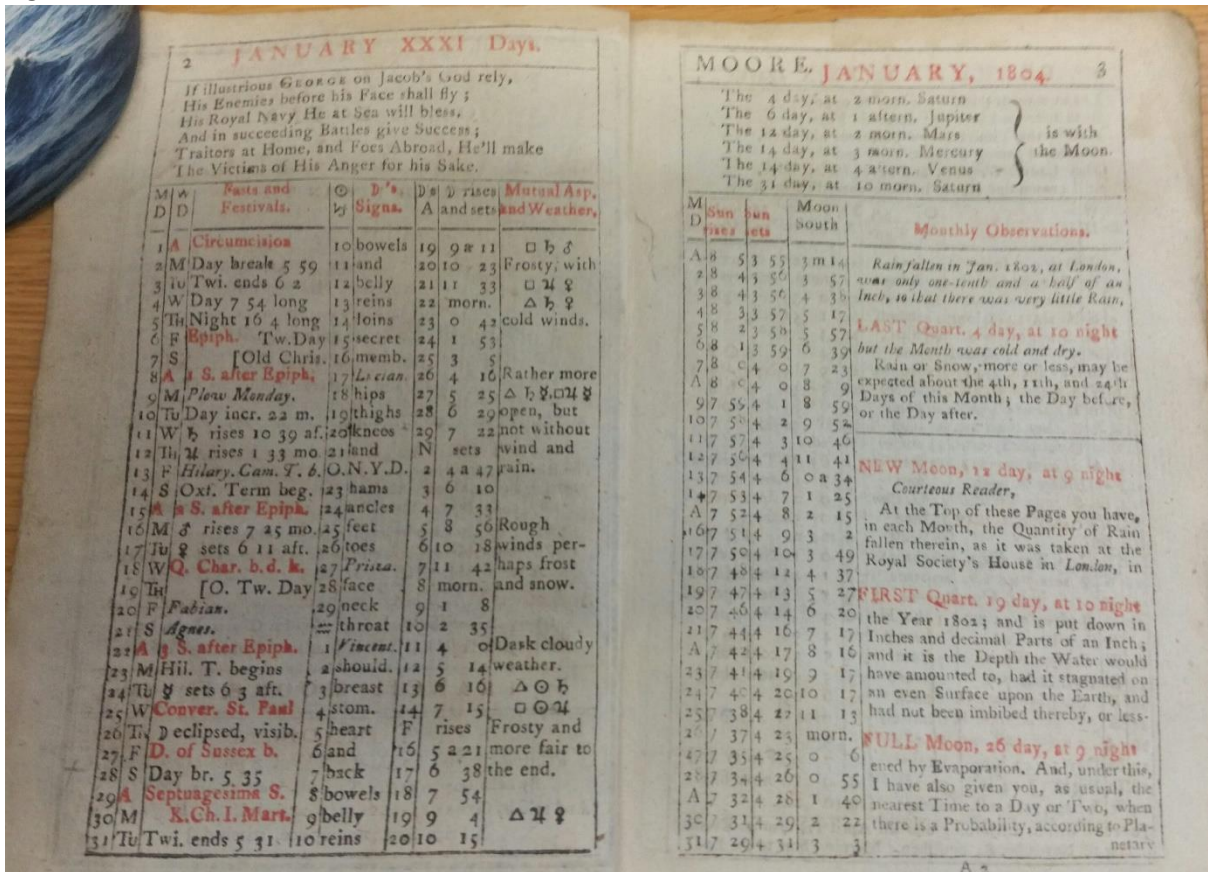 2 JANUARY XXXI Days.
If illustrious GEORGE on Jacob's God rely,
His Enemies before his Face shall fly;
His Royal Navy He at Sea will bless,
And in succeeding Battles give Success;
Traitors at Home, and Foes Abroad, He'll make
The Victims of His Anger for his Sake.
M D W D Fasts and Festivals. ☉ ♑ D's. Signs. D s A D rises and sets Mutual Asp. and Weather.
1 A Circumcision 10 bowels 19 9 a 11 □ ♄ ♂
2 M Day breaks 5 59 11 and 20 10 23 Frosty, with
3 Tu Twi. ends 6 2 12 belly 21 11 33 □ ♃ ♀
4 W Day 7 54 long 13 reins 22 morn. △ ♄ ♀
5 TH Night 16 4 long 14 loins 23 0 42 cold winds.
6 F Epiph. Tw. Day 15 secret 24 1 53
7 S [Old Chris. 16 memb. 25 3 5
8 A 1 S. after Epiph. 17 Lucian. 26 4 16 Rather more
9 M Plow Monday. 18 hips 27 5 25 △ ♄ ☿. □ ♃ ☿
10 Tu Day incr. 22 m. 19 thighs 28 6 29 open, but
11 W ♄ rises 10 39 af. 20 knees 29 7 22 not without
12 Th ♃ rises 1 33 mo. 21 and N sets wind and
13 F Hilary. Cam. T. b. O.N.Y.D. 2 4 a 47 rain.
14 S Oxf. Term beg. 23 hams 3 6 10
15 A 2 S. after Epiph. 24 ancles 4 7 33
16 M ♂ rises 7 25 mo. 25 feet 5 8 56 Rough
17 Tu ♀ sets 6 11 aft. 26 toes 6 10 18 winds per-
18 W Q. Char. b. d. k. 27 Prisca. 7 11 42 haps frost
19 TH [O. Tw. Day 28 face 8 morn. and snow.
20 F Fabian. 29 neck 9 1 8
21 S Agnes. ♒ throat 10 2 35
22 A 3 S. after Epiph. 1 Vincent. 11 4 0 Dask cloudy
23 M Hil. T. begins 2 should. 12 5 14 weather.
24 Tu ☿ sets 6 3 aft. 3 breast 13 6 16 △ ☉ ♄
25 W Conver. St. Paul 4 stom. 14 7 15 □ ☉ ♃
26 Th D eclipsed, visib. 5 heart F rises Frosty and
27 F D. of Sussex b. 6 and 16 5 a 21 more fair to
28 S Day br. 5 35 7 back 17 6 38 the end.
29 A Septuagesima S. 8 bowels 18 7 54
30 M K. Ch. I. Mart. 9 belly 19 9 4 △ ♃ ♀
31 Tu Twi. ends 5 31 10 reins 20 10 15
MOORE. JANUARY, 1804. 3
The 4 day, at 2 morn. Saturn
The 6 day, at 1 aftern. Jupiter
The 12 day, at 2 morn. Mars is with
The 14 day, at 3 morn. Mercury the Moon.
The 14 day, at 4 aftern. Venus
The 31 day, at 10 morn. Saturn
M D Sun rises Sun sets Moon South
A 8 5 3 55 3 m 14
2 8 4 3 56 3 57
3 8 4 3 56 4 36
4 8 3 3 57 5 17
5 8 2 3 58 5 57
6 8 1 3 59 6 39
7 8 0 4 0 7 23
A 8 0 4 0 8 9
9 7 59 4 1 8 59
10 7 58 4 2 9 52
11 7 57 4 3 10 46
12 7 56 4 4 11 41
13 7 54 4 6 0 a 34
14 7 53 4 7 1 25
A 7 52 4 8 2 15
16 7 51 4 9 3 2
17 7 50 4 10 3 49
18 7 48 4 12 4 37
19 7 47 4 13 5 27
20 7 46 4 14 6 20
21 7 44 4 16 7 17
A 7 42 4 17 8 16
23 7 41 4 19 9 17
24 7 40 4 20 10 17
25 7 38 4 22 11 13
26 7 37 4 23 morn.
27 7 35 4 25 0 6
28 7 34 4 26 0 55
A 7 32 4 28 1 40
30 7 31 4 29 2 22
31 7 29 4 31 3 3
Monthly Observations.
Rain fallen in Jan. 1802, at London,
was only one-tenth and a half of an
Inch, so that there was very little Rain,
LAST Quart. 4 day, at 10 night
but the Month was cold and dry.
Rain or Snow, more or less, may be
expected about the 4th, 11th, and 24th
Days of this Month; the Day before,
or the Day after.
NEW Moon, 12 day, at 9 night
Courteous Reader,
At the Top of these Pages you have,
in each Month, the Quantity of Rain
fallen therein, as it was taken at the
Royal Society's House in London, in
FIRST Quart. 19 day, at 10 night
the Year 1802; and is put down in
Inches and decimal Parts of an Inch;
and it is the Depth the Water would
have amounted to, had it stagnated on
an even Surface upon the Earth, and
had not been imbibed thereby, or less-
FULL Moon, 26 day, at 9 night
ened by Evaporation. And, under this,
I have also given you, as usual, the
nearest Time to a Day or Two, when
there is a Probability, according to Pla-
netary